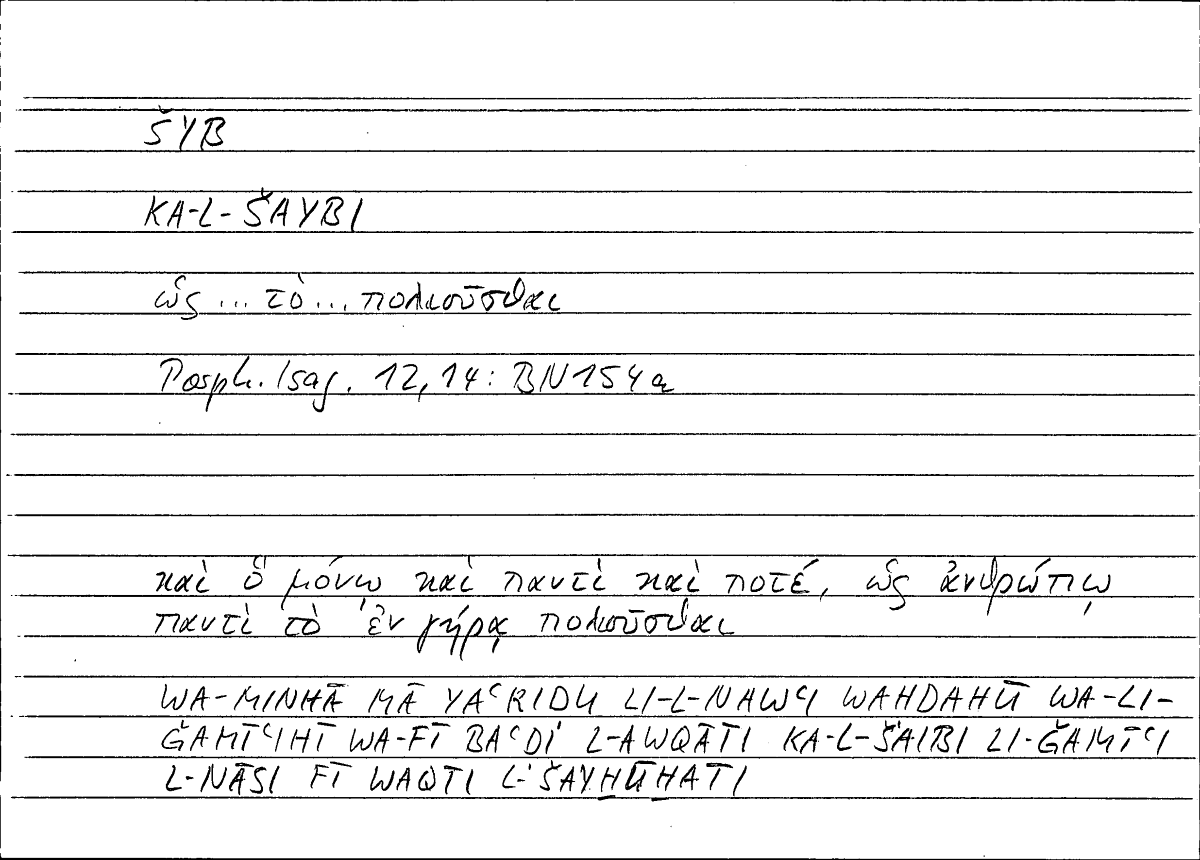 ŠYB
KA-L-ŠAYBI
ὡς ... τὸ ... πολιοῦσθαι
Porph. Isag. 12,14: BN154a
καὶ ὃ μόνῳ καὶ παντὶ καὶ ποτέ, ὡς ἀνθρώπῳ
παντὶ τὸ ἐν γήρᾳ πολιοῦσθαι
WA-MINHĀ MĀ YAʿRIḌU LI-L-NAWʿI WAḤDAHŪ WA-LI-
ǦAMĪʿIHĪ WA-FĪ BAʿḌI L-AWQĀTI KA-L-ŠAIBI LI-ǦAMĪʿI
L-NĀSI FĪ WAQTI L-ŠAYḪŪḪATI